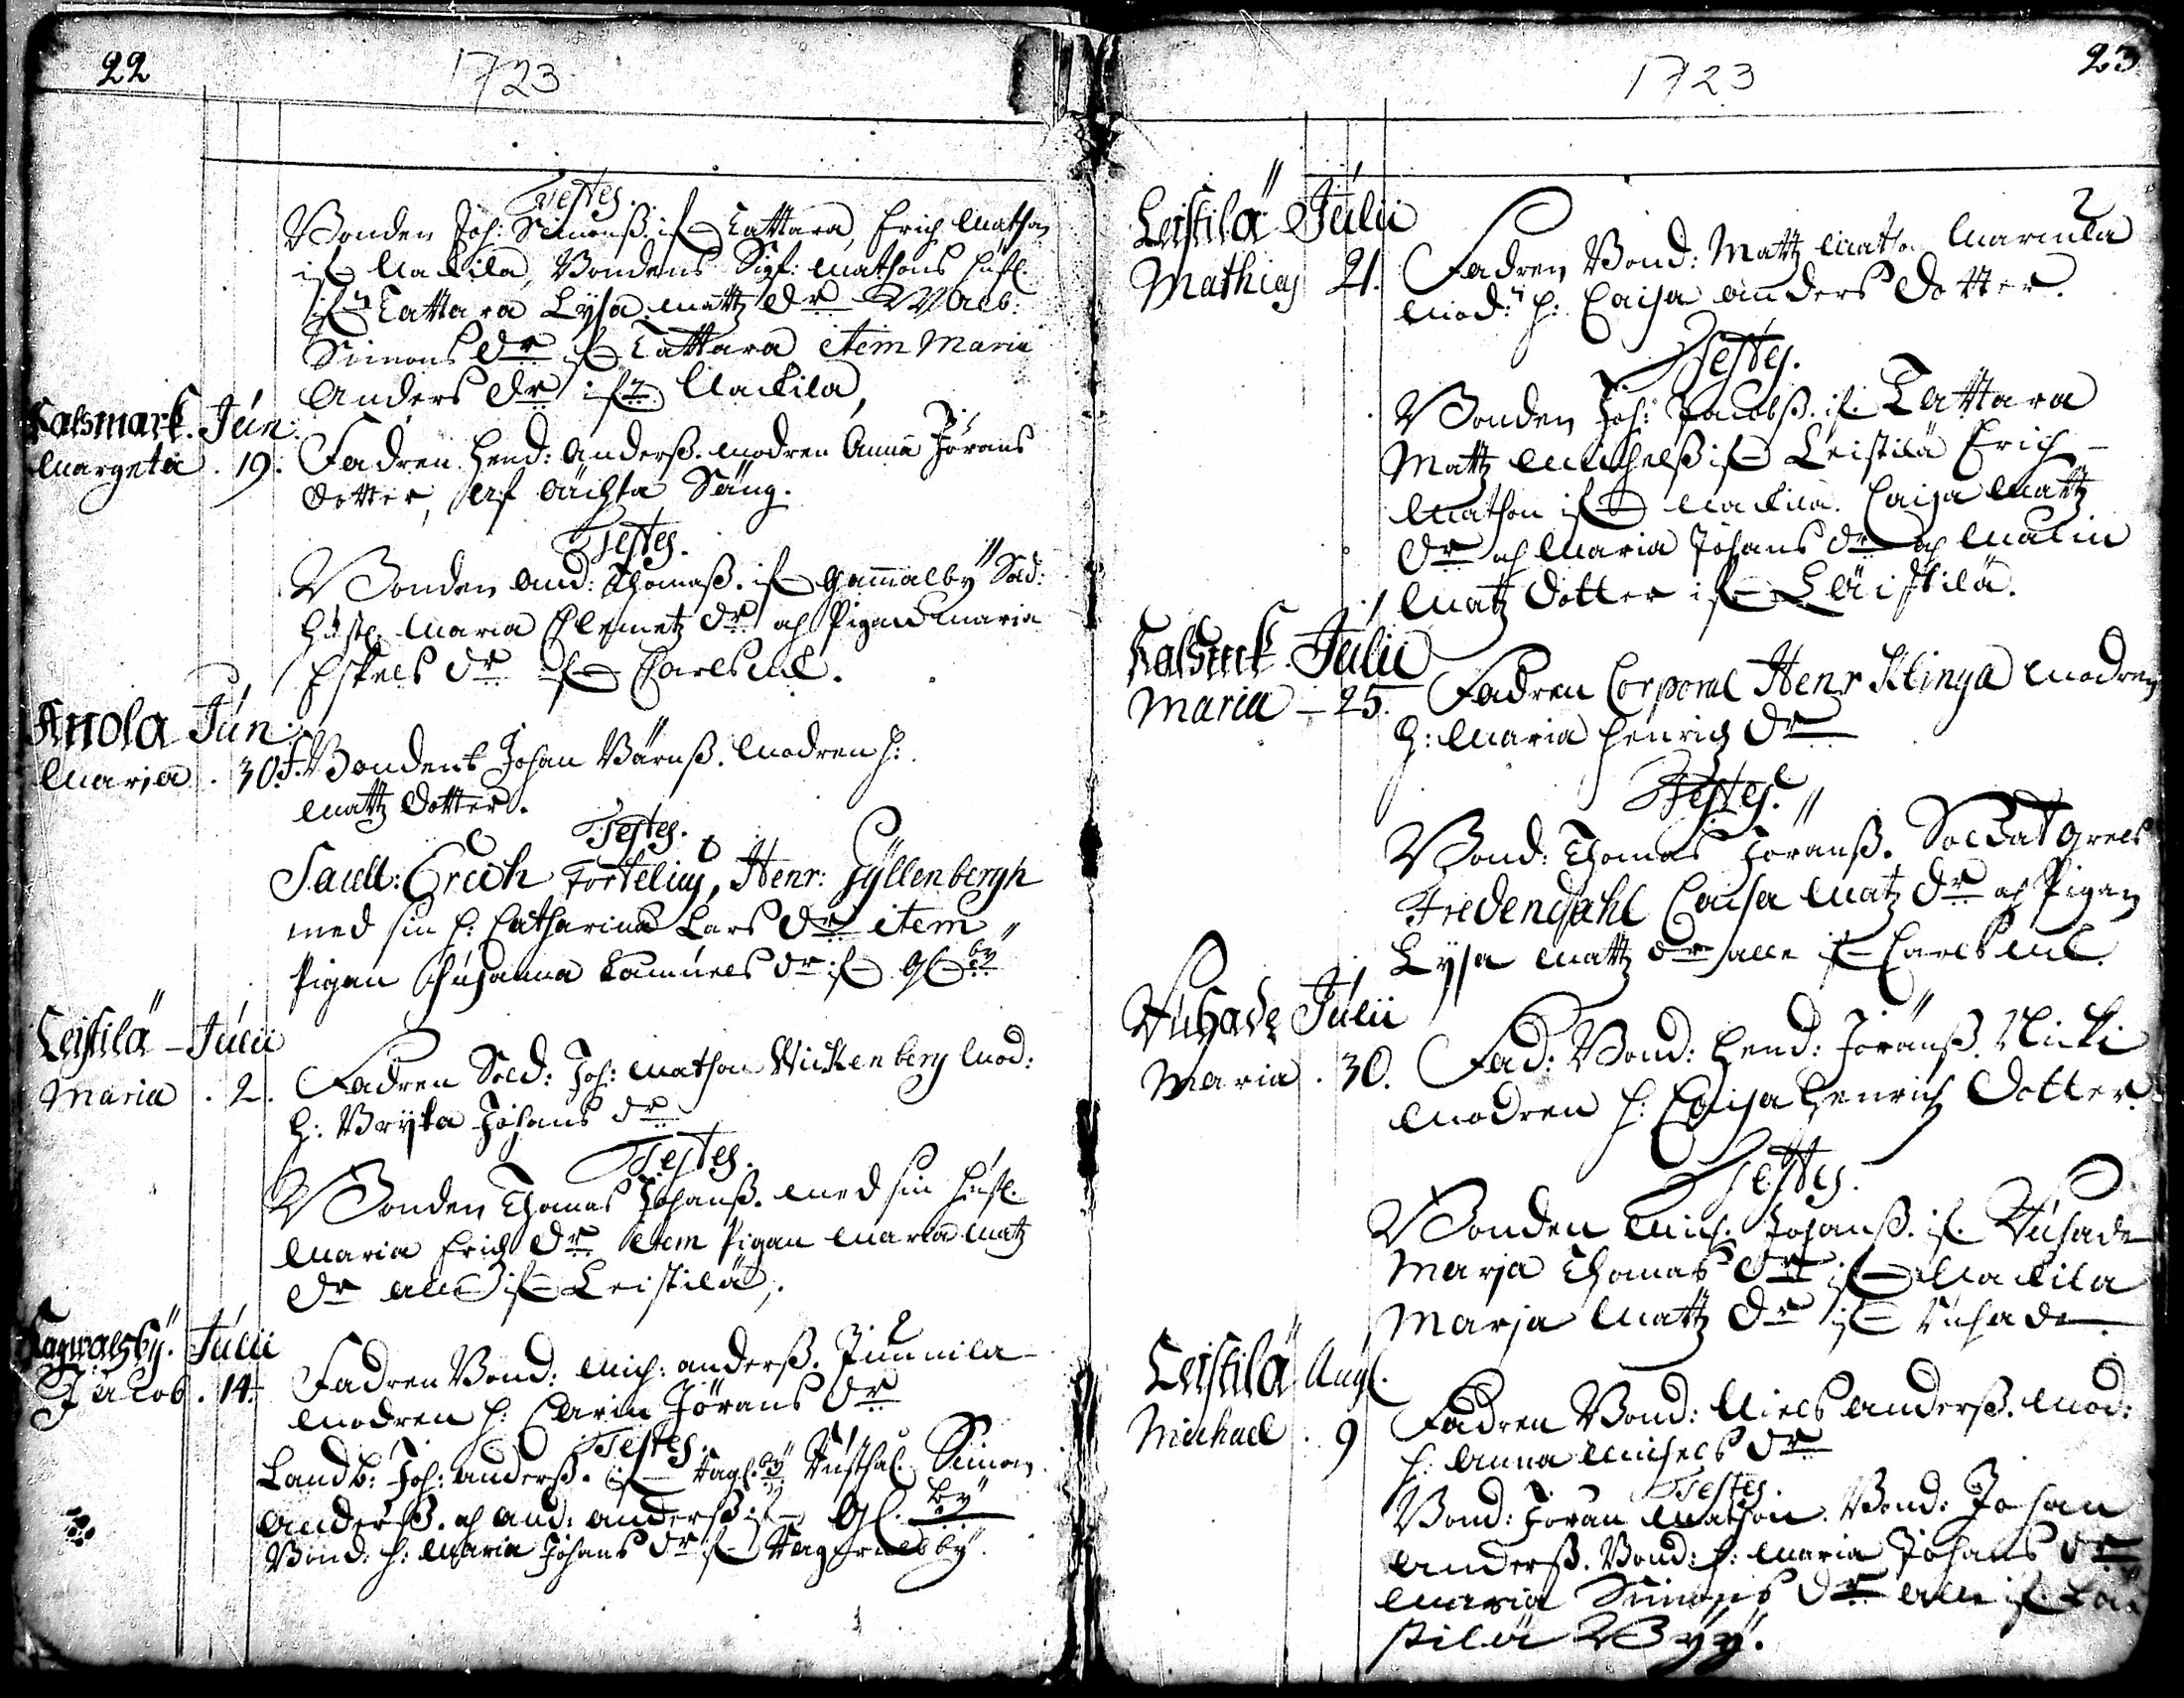 22
1723
Testes.
Bonden Joh: Simonß. if Tattara, Erich Mathson
if Nackila, Bondens Sigf: Mathsons hust.
if Tattara Lysa Mattz dr Walb:
Simons dr if Tattara item Maria
Anders dr if Nackila,
Kalsmark. Jun:
Margeta . 19. Fadren Hend: Anderß. Modren Anna Jörans
dotter, af ächta Säng.
Testes.
Bonden And: Thomaß. if Gammalby Sold:
hust. Maria Clemetz dr och Pigan Maria
Eskels dr if Carlsmk.
Anola Jun:
Maria . 30. F. Bonden Johan Bärnß. Modren h:
Mattz dotter.
Testes.
Saell: Erich Fortelius, Henr: Gyllenbergh
med sin h: Catharina Lars dr item
Pigan Susanna Samuels dr if Gl by
Leistilä - Julii
Maria . 2. Fadren Sold: Joh: Mathson Wickenberg Mod:
h: Bryta Johans dr
Testes.
Bonden Thomas Johanß. med sin hust.
Maria Erich dr item Pigan Maria Matz
dr alle if Leistilä,
Ragwalsby. Julii
Jacob . 14. Fadren Bond: Mich: Anderß. Junnila
Modren h: Carin Jörans dr
Testes.
Landb: Joh: Anderß. if Ragl. by Rusthal. Simon
Anderß. och And: Anderß if Gl. by
Bond: h: Maria Johans dr if Ragwalsby.
23
1723
Leistilä Julii
Mathias 21. Fadren Bond: Mattz Mathson Marcula
Mod: h: Caisa Anders dotter.
Testes.
Bonden Joh: Jacobß. if. Tattara
Mattz Michelß if Leistilä Erich
Mathson if Nackila. Caisa Mattz
dr och Maria Johans dr och Malin
Matz dotter if Läistilä.
Kalsmrk. Julii
Maria - 25. Fadren Corporal Henr Klinga Modren
h: Maria Henrichs dr
Testes.
Bond: Thomas Jöranß. Soldat Grels
Fredensdahl Caisa Matz dr och Pigan
Lysa Mattz dr alle if Carlsmk.
Ruhade Julii
Maria . 30. Fad: Bond: Hend: Jöranß. Nicki
Modren h: Caisa Henrichs dotter.
Testes.
Bonden Mich: Johanß. if. Ruhade
Marja Thomas dr if Nackila
Marja Mattz dr if Ruhade.
Leistilä Aug.
Michael . 9 Fadren Bond: Niels Anderß. Mod:
h. Anna Michels dr
Testes.
Bond: Jöran Mathson. Bond: Johan
Anderß. Bond: h: Maria Johans dr
Maria Simons dr alle if Läi
stilä Byy.